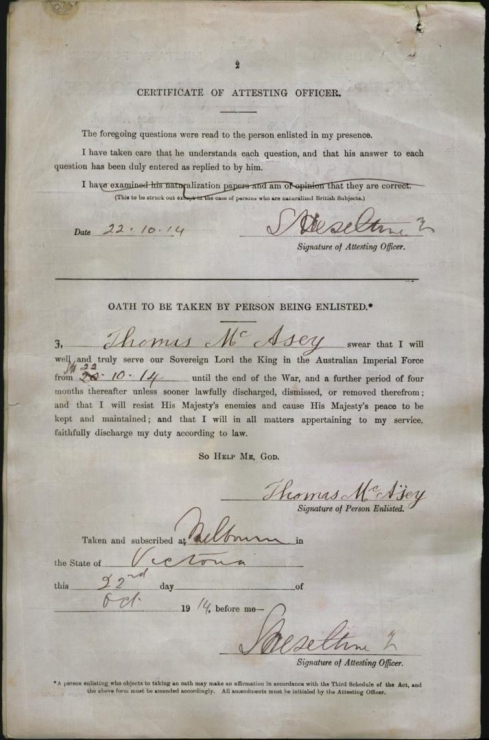 2
CERTIFICATE OF ATTESTING OFFICER.
The foregoing questions were read to the person enlisted in my presence.
I have taken care that he understands each question, and that his answer to each
question has been duly entered as replied to by him.
I have examined his naturalization papers and am of opinion that they are correct.
(This to be struck out except in the case of persons who are naturalized British Subjects.)
Date 22.10.14
Signature of Attesting Officer.
OATH TO BE TAKEN BY PERSON BEING ENLISTED.*
I, Thomas McAsey swear that I will
well and truly serve our Sovereign Lord the King in the Australian Imperial Force
22
from 10.14 until the end of the War, and a further period of four
months thereafter unless sooner lawfully discharged, dismissed, or removed therefrom;
and that I will resist His Majesty's enemies and cause His Majesty's peace to be
kept and maintained; and that I will in all matters appertaining to my service,
faithfully discharge my duty according to law.
SO HELP ME, GOD.
Thomas McAsey
Signature of Person Enlisted.
Taken and subscribed at Melbourne in
the State of Victoria
this 22nd day of
Oct 1914, before me—
Signature of Attesting Officer.
*A person enlisting who objects to taking an oath may make an affirmation in accordance with the Third Schedule of the Act, and
the above form must be amended accordingly. All amendments must be initialed by the Attesting Officer.